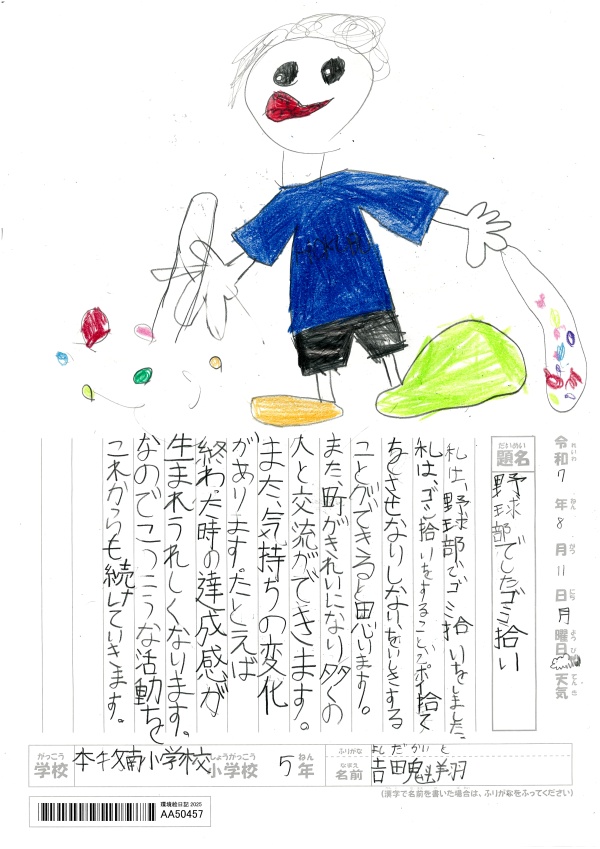 令和 7年 8月 11日 月曜日 天気
れいわ ねん がつ にち ようび てんき
だいめい
題名 野球部でしたゴミ拾い
私は、野球部でゴミ拾いをしました。
私は、ゴミ拾いをすることでポイ捨て
をさせないしないをいしきする
ことができると思います。
また、町がきれいになり多くの
人と交流ができます。
また、気持ちの変化
があります。たとえば
終わった時の達成感が
生まれうれしくなります。
なのでこういうな活動を
これからも続けていきます。
がっこう しょうがっこう ねん
学校 本牧南小学校 小学校 5年
ふりがな よしだかいと
なまえ
名前 吉田魁翔
(漢字で名前を書いた場合は、ふりがなをふってください)
環境絵日記 2025
AA50457